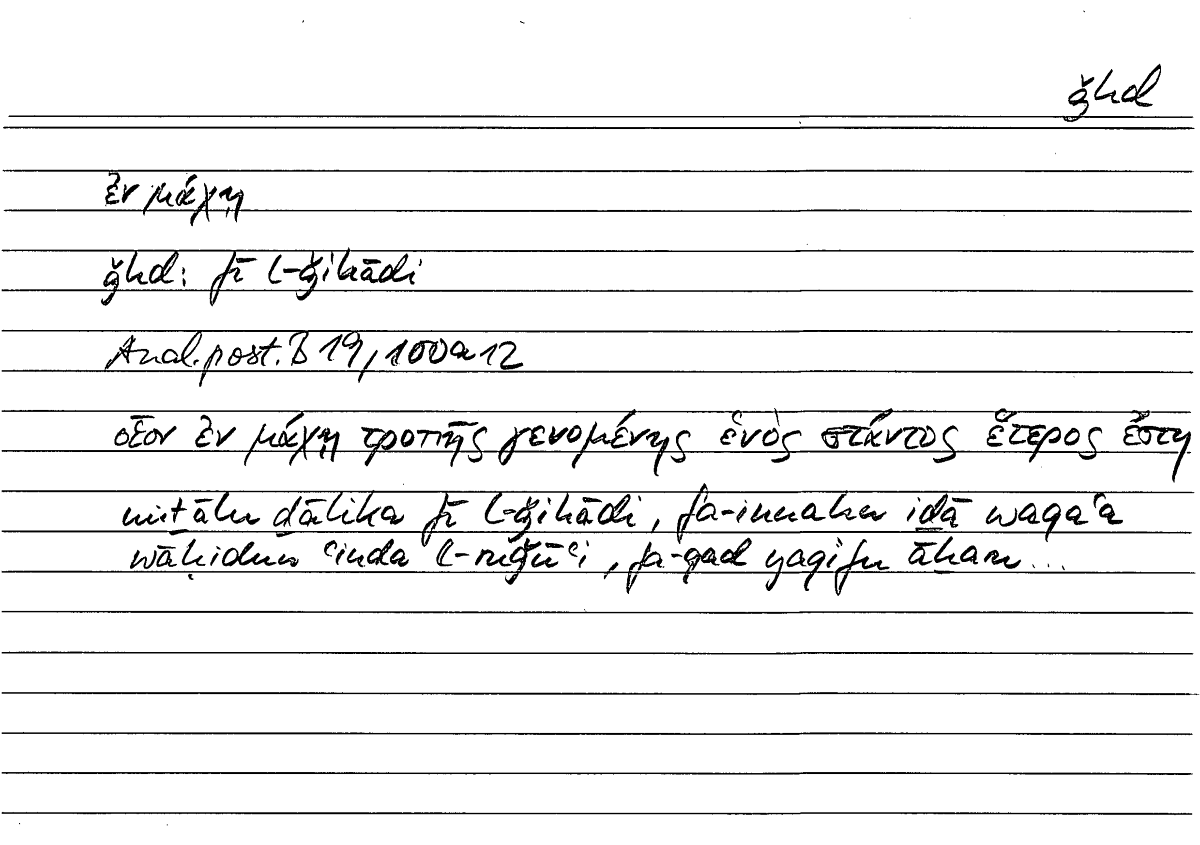 ǧhd
ἐν μάχῃ
ǧhd: fī l-ǧihādi
Anal. post. B 19, 100a12
οἷον ἐν μάχῃ τροπῆς γενομένης ἑνὸς στάντος ἕτερος ἔστη
miṯālu ḏālika fī l-ǧihādi, fa-innahu iḏā waqaʿa
wāḥidun ʿinda l-ruǧūʿi, fa-qad yaqifu āḫaru...